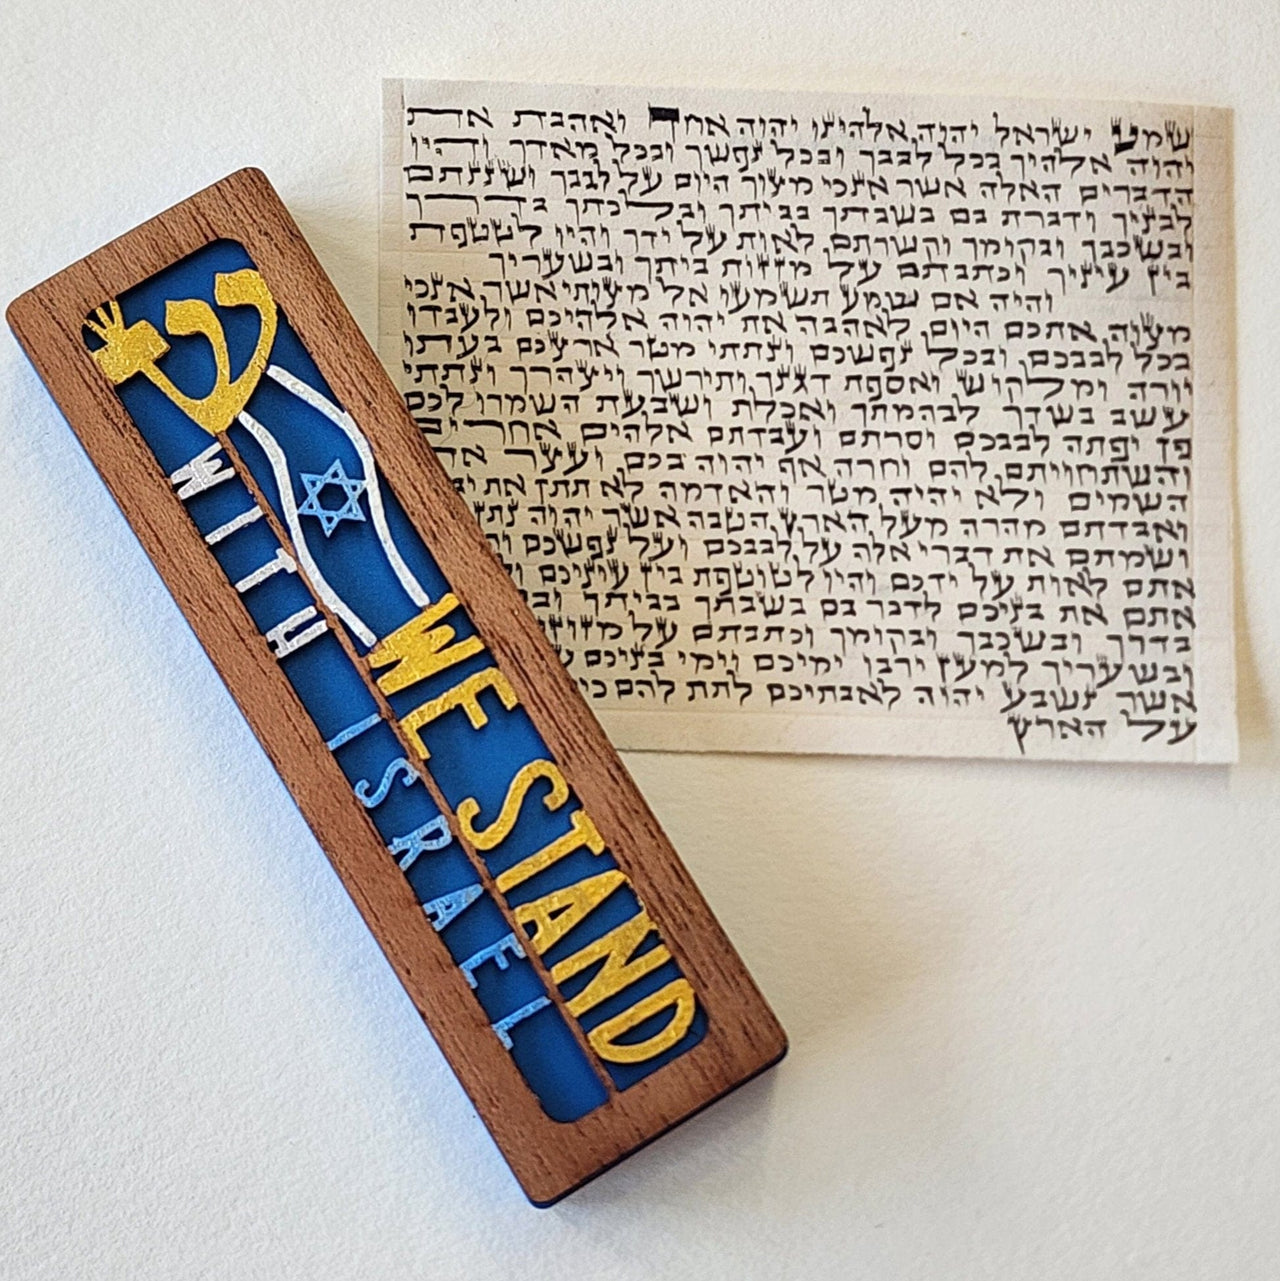 ש
WE STAND
WITH
ISRAEL
שמע ישראל יהוה אלהינו יהוה אחד ואהבת את
יהוה אלהיך בכל לבבך ובכל נפשך ובכל מאדך והיו
הדברים האלה אשר אנכי מצוך היום על לבבך ושננתם
לבניך ודברת בם בשבתך בביתך ובלכתך בדרך
ובשכבך ובקומך וקשרתם לאות על ידך והיו לטטפת
בין עיניך וכתבתם על מזזות ביתך ובשעריך
והיה אם שמע תשמעו אל מצותי אשר אנכי
מצוה אתכם היום לאהבה את יהוה אלהיכם ולעבדו
בכל לבבכם ובכל נפשכם ונתתי מטר ארצכם בעתו
יורה ומלקוש ואספת דגנך ותירשך ויצהרך ונתתי
עשב בשדך לבהמתך ואכלת ושבעת השמרו לכם
פן יפתה לבבכם וסרתם ועבדתם אלהים אחרים
והשתחויתם להם וחרה אף יהוה בכם ועצר את
השמים ולא יהיה מטר והאדמה לא תתן את
ואבדתם מהרה מעל הארץ הטבה אשר יהוה נתן
ושמתם את דברי אלה על לבבכם ועל נפשכם
אתם לאות על ידכם והיו לטוטפת בין עיניכם
אתם את בניכם לדבר בם בשבתך בביתך
בדרך ובשכבך ובקומך וכתבתם על
ובשעריך למען ירבו ימיכם וימי בניכם
אשר נשבע יהוה לאבתיכם לתת להם
על הארץ